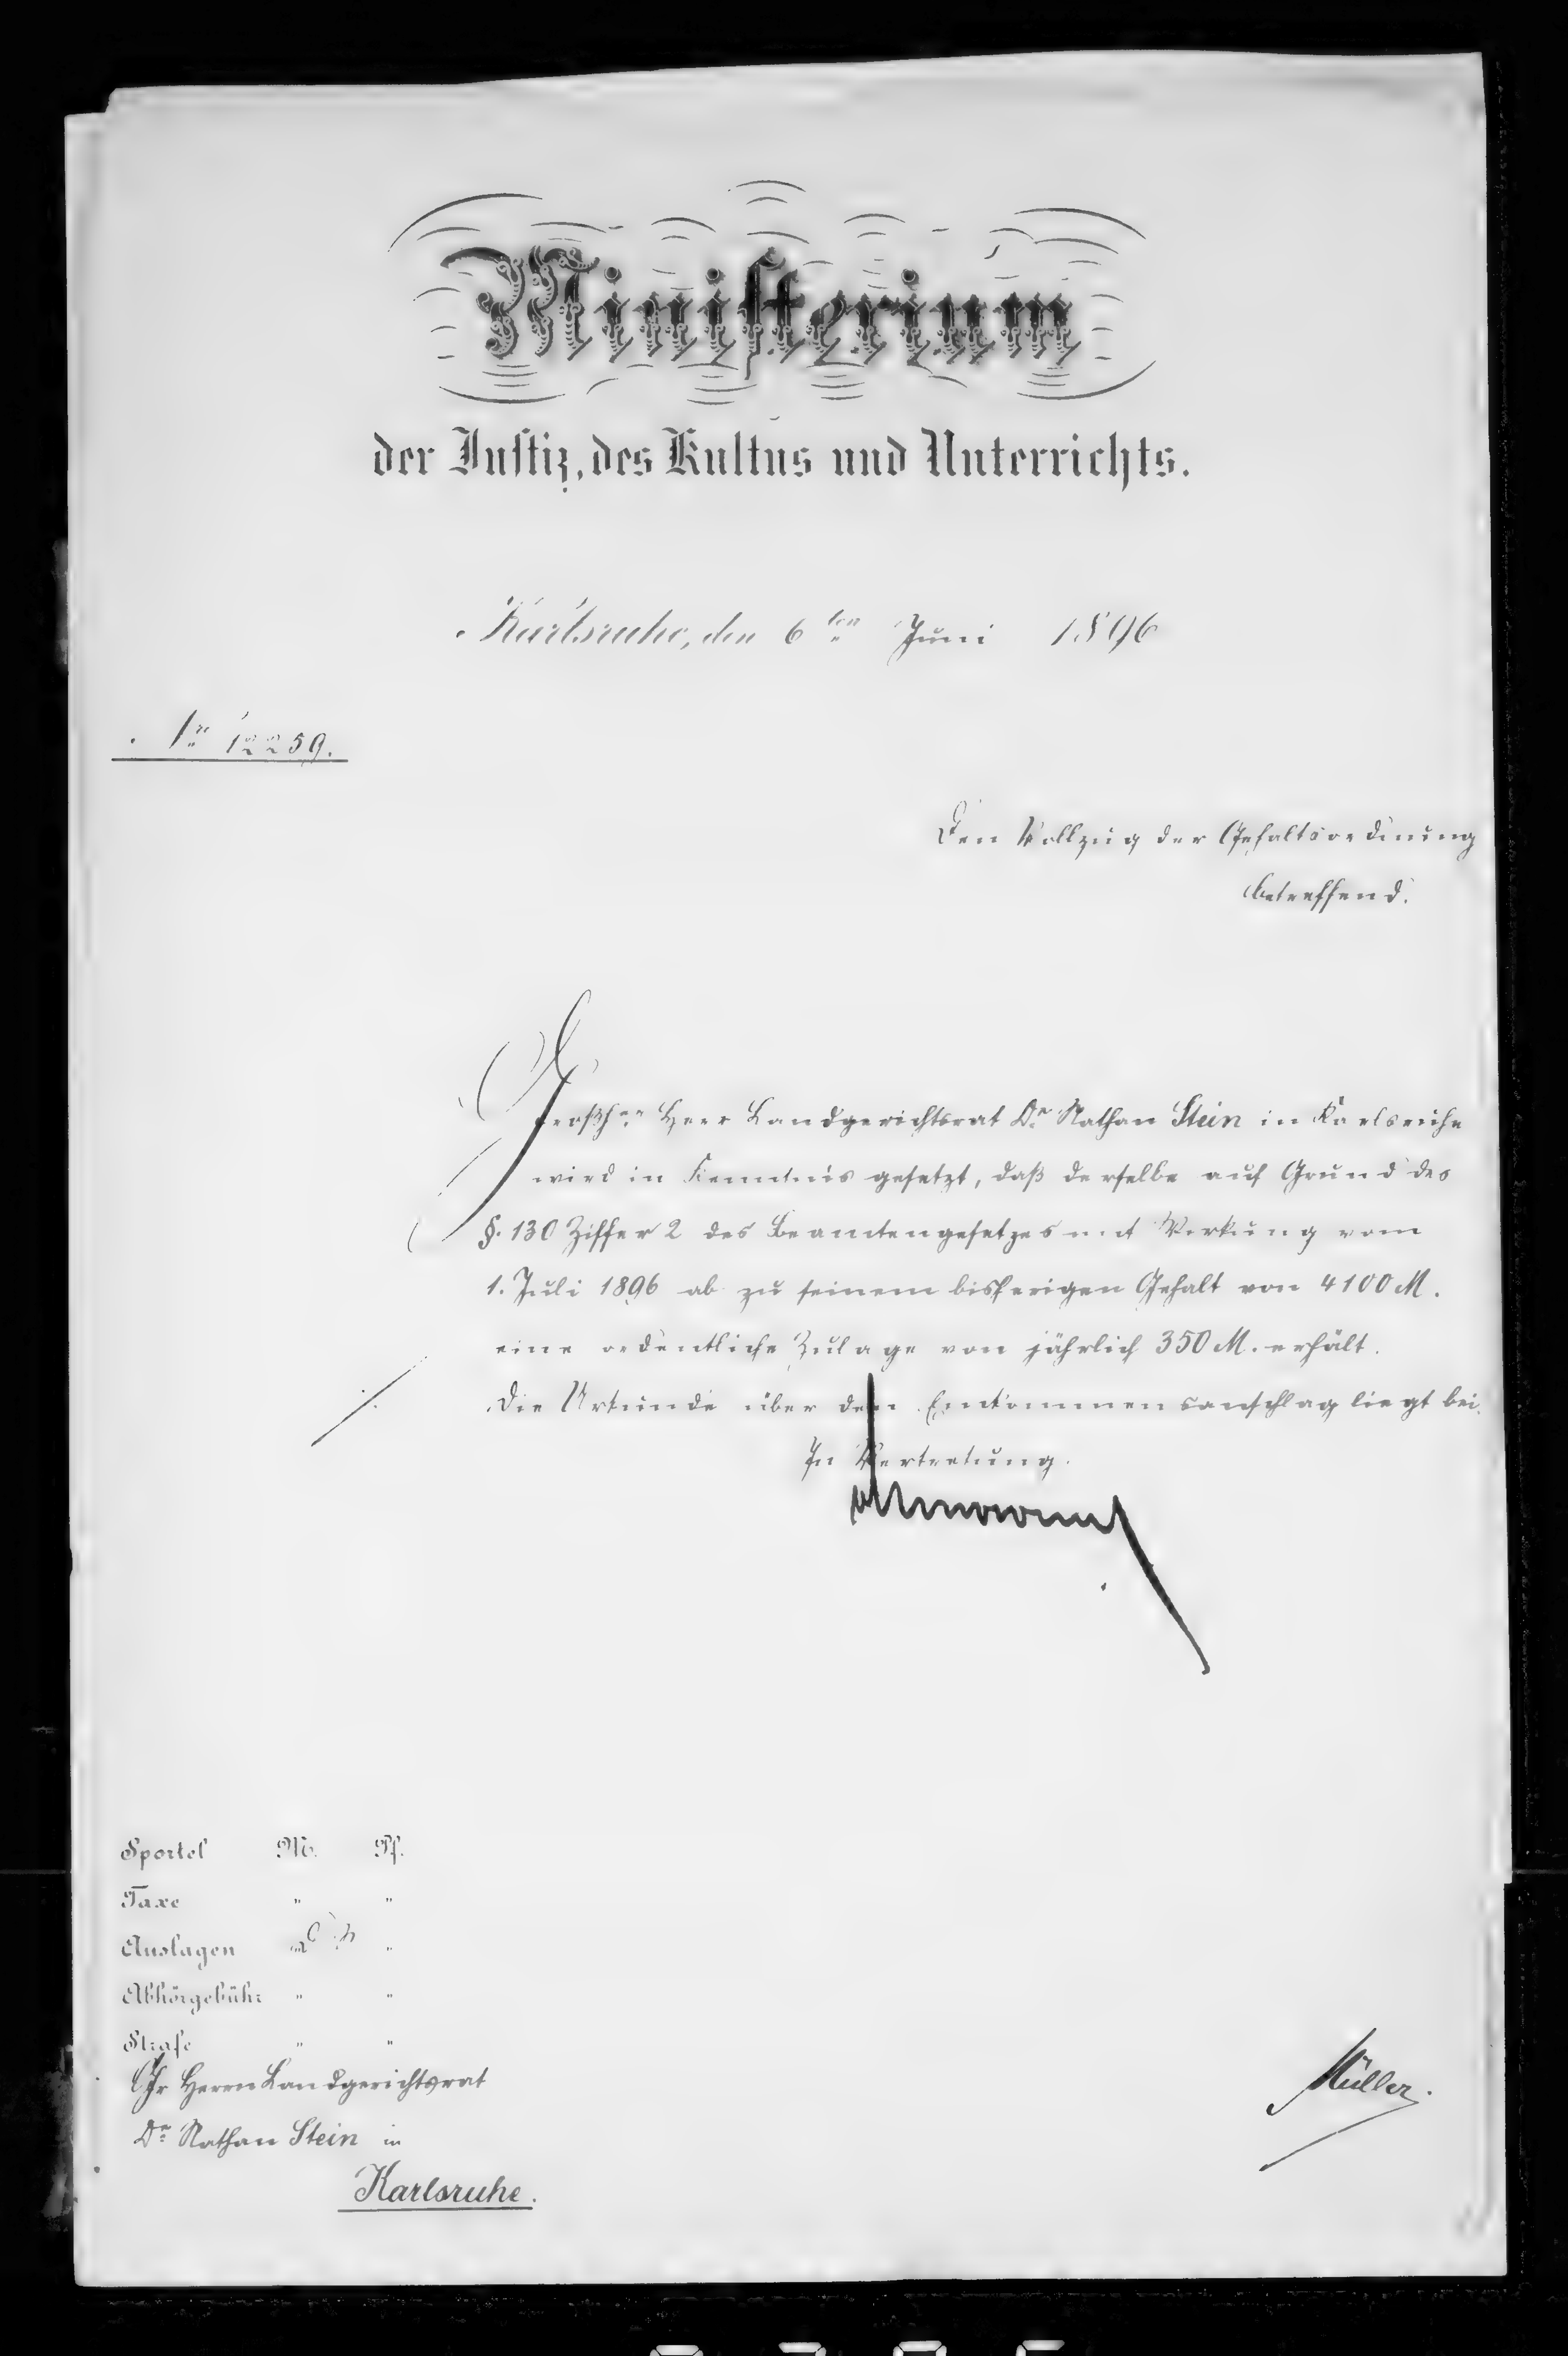 Ministerium
der Justiz, des Kultus und Unterrichts.
Karlsruhe, den 6ten Juni 1896
Nr. 12259.
Den Vollzug der Gehaltsordnung
betreffend.
Großhr. Herr Landgerichtsrat Dr. Nathan Stein in Karlsruhe
wird in Kenntnis gesetzt, daß derselbe auf Grund des
§. 130 Ziffer 2 des Beamtengesetzes mit Wirkung vom
1. Juli 1896 ab zu seinem bisherigen Gehalt von 4100 M.
eine ordentliche Zulage von jährlich 350 M. erhält.
Die Urkunde über den Einkommensanschlag liegt bei.
In Vertretung.
Sportel M. Pf.
Taxe " "
Auslagen "
Abhörgebühr " "
Strafe " "
Gr Herrn Landgerichtsrat
Dr. Nathan Stein in
Karlsruhe.
Müller.